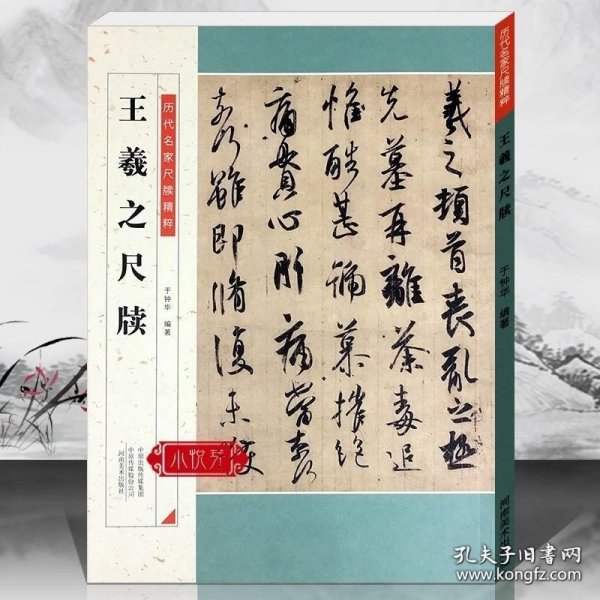 历代名家尺牍精粹
王羲之尺牍
于钟华 编著
中原出版传媒集团
中原传媒股份公司
河南美术出版社
羲之顿首丧乱之极
先墓再离荼毒追
惟酷甚号慕摧绝
痛贯心肝痛当奈
奈何虽即修复未获
小悦芽
历代名家尺牍精粹
王羲之尺牍
于钟华 编著
河南美术出
孔夫子旧书网
www.kongfz.com